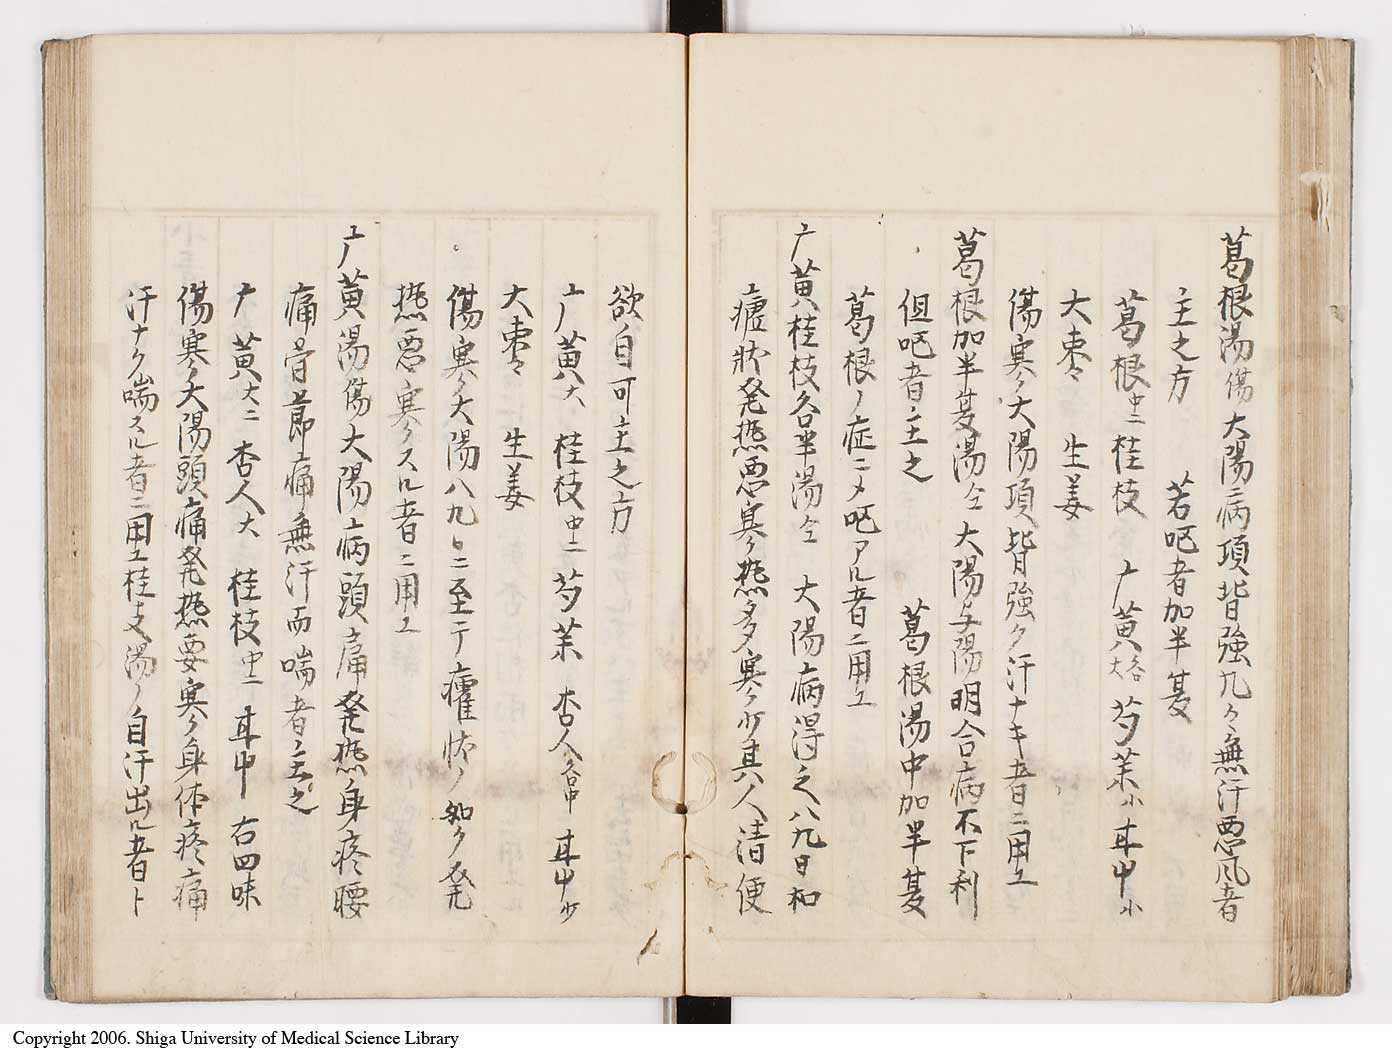 葛根湯 傷 大陽病項背強几々無汗悪风者
主之方 若呕者加半夏
葛根中二 桂枝 广黄各大 芍薬小 甘中小
大棗 生姜
傷寒大陽項背強ク汗ナキ者ニ用エ
葛根加半夏湯仝 大陽与陽明合病不下利
但呕者主之 葛根湯中加半夏
葛根ノ症ニメ呕アル者ニ用エ
广黄桂枝各半湯仝 大陽病得之八九日如
瘧状発熱悪寒熱多寒少其人清便
欲自可主之方
广黄大 桂枝中二 芍薬 杏人各中 甘中少
大棗 生姜
傷寒大陽八九日ニ至テ瘧状ノ如ク発
熱悪寒スル者ニ用エ
广黄湯傷 大陽病頭痛発熱身疼腰
痛骨節痛無汗而喘者主之
广黄大二 杏人大 桂枝中二 甘中 右四味
傷寒大陽頭痛発熱悪寒身体疼痛
汗ナク喘スル者ニ用エ桂支湯ノ自汗出ル者ト
Copyright 2006. Shiga University of Medical Science Library